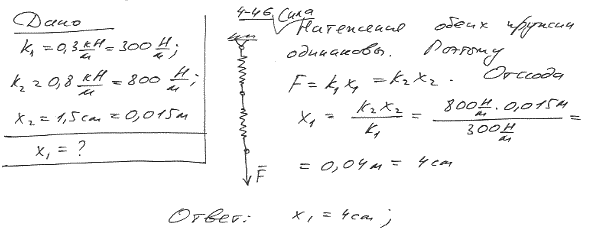 Дано
k₁ = 0,3 кН/м = 300 Н/м;
k₂ = 0,8 кН/м = 800 Н/м;
x₂ = 1,5 cm = 0,015 м
x₁ = ?
4-46 Сила
Натяжение обеих пружин
одинаковы. Поэтому
F = k₁x₁ = k₂x₂. Отсюда
x₁ = k₂x₂/k₁ = 800 Н/м · 0,015 м / 300 Н/м =
= 0,04 м = 4 cm
F̄
Ответ: x₁ = 4 cm;